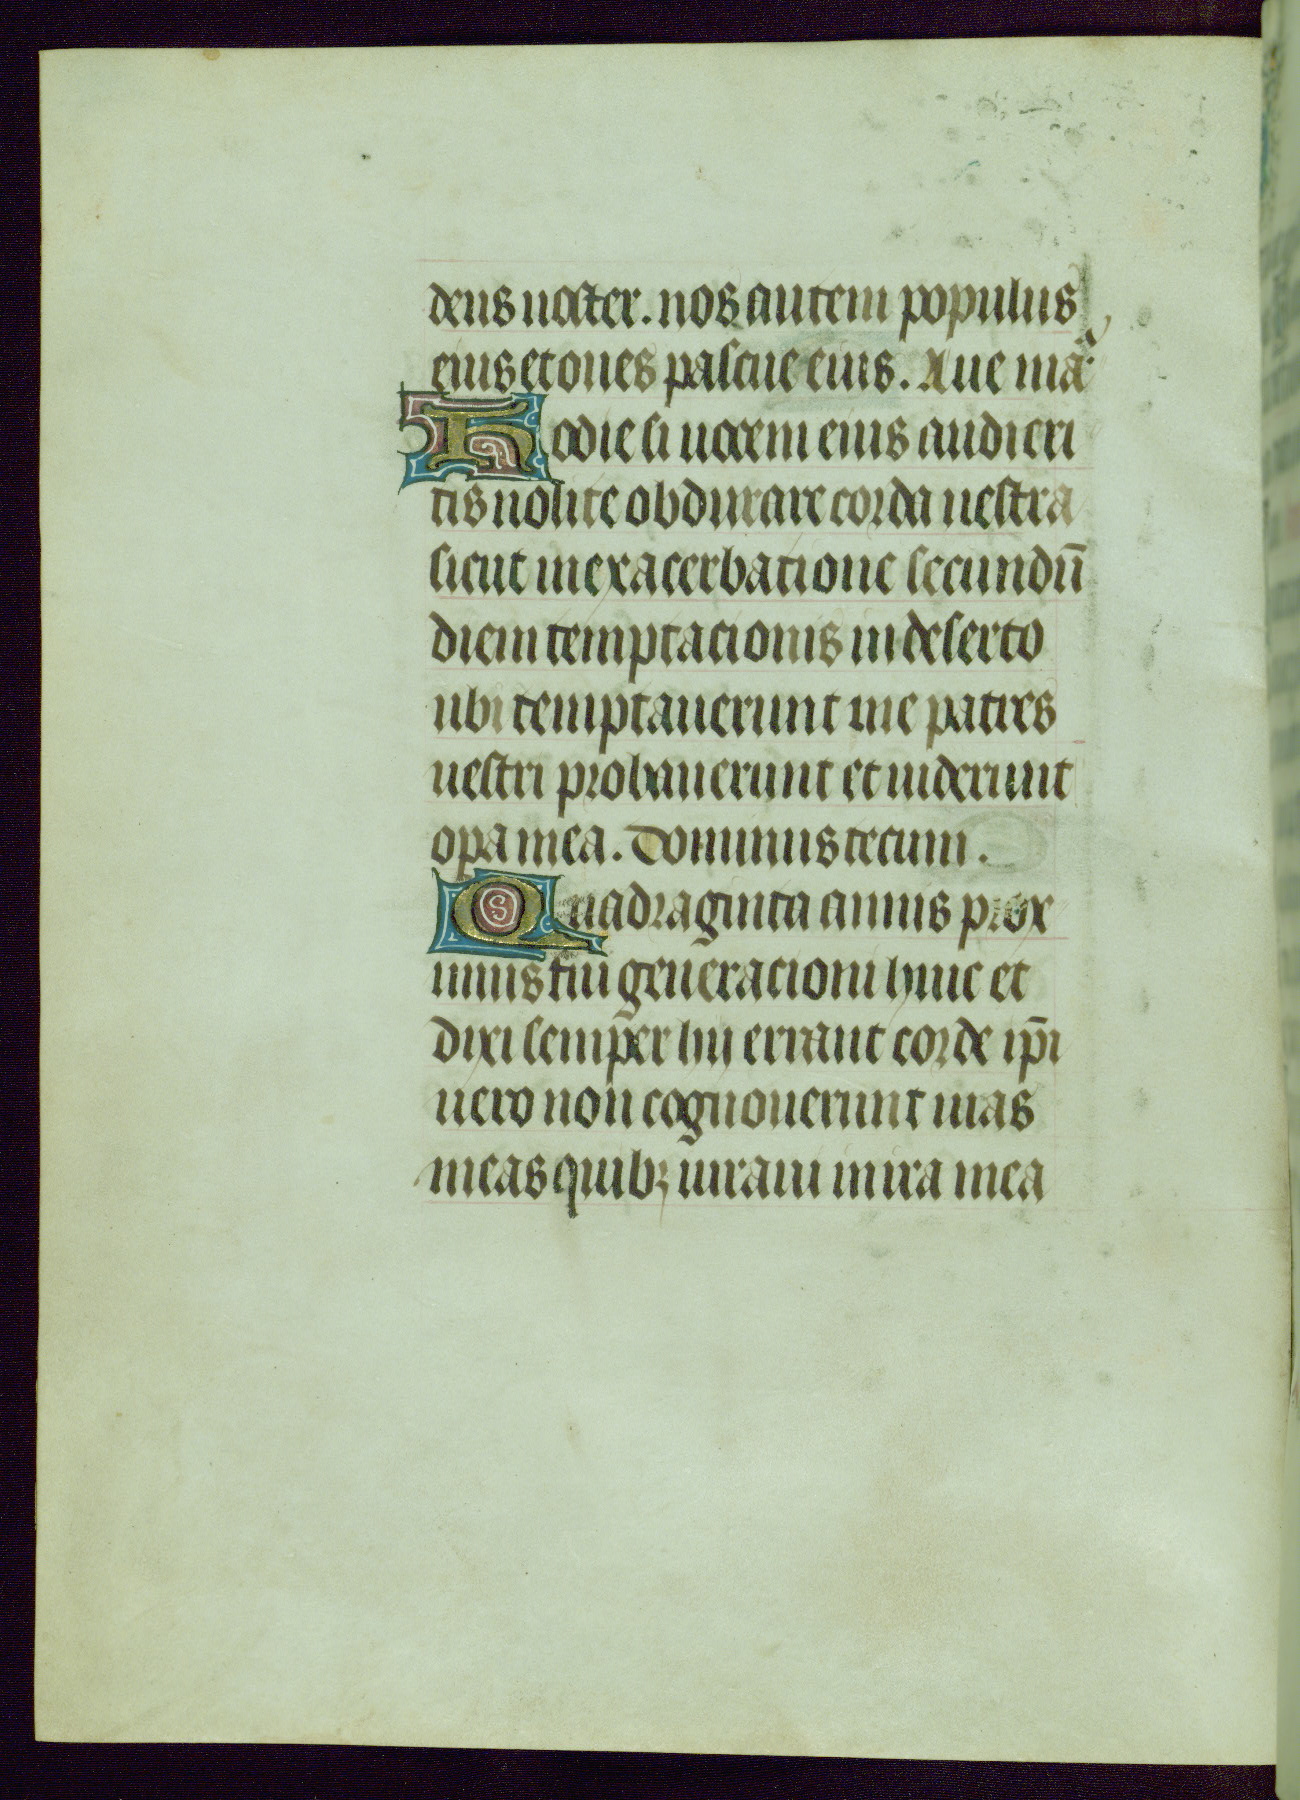 deus noster. nos autem populus
eius et oues pascue eius. Aue maᵃ
Hodie si uocem eius audieri
tis nolite obdurare corda uestra
sicut in exacerbatione secundū
diem temptacionis in deserto
ubi temptauerunt me patres
uestri probauerunt et uiderunt
opa mea. Dominus tecum.
Quadraginta annis prox
imus fui generacioni huic et
dixi semper hii errant corde ip̄i
uero non cognouerunt uias
meas quibꝫ iuraui in ira mea